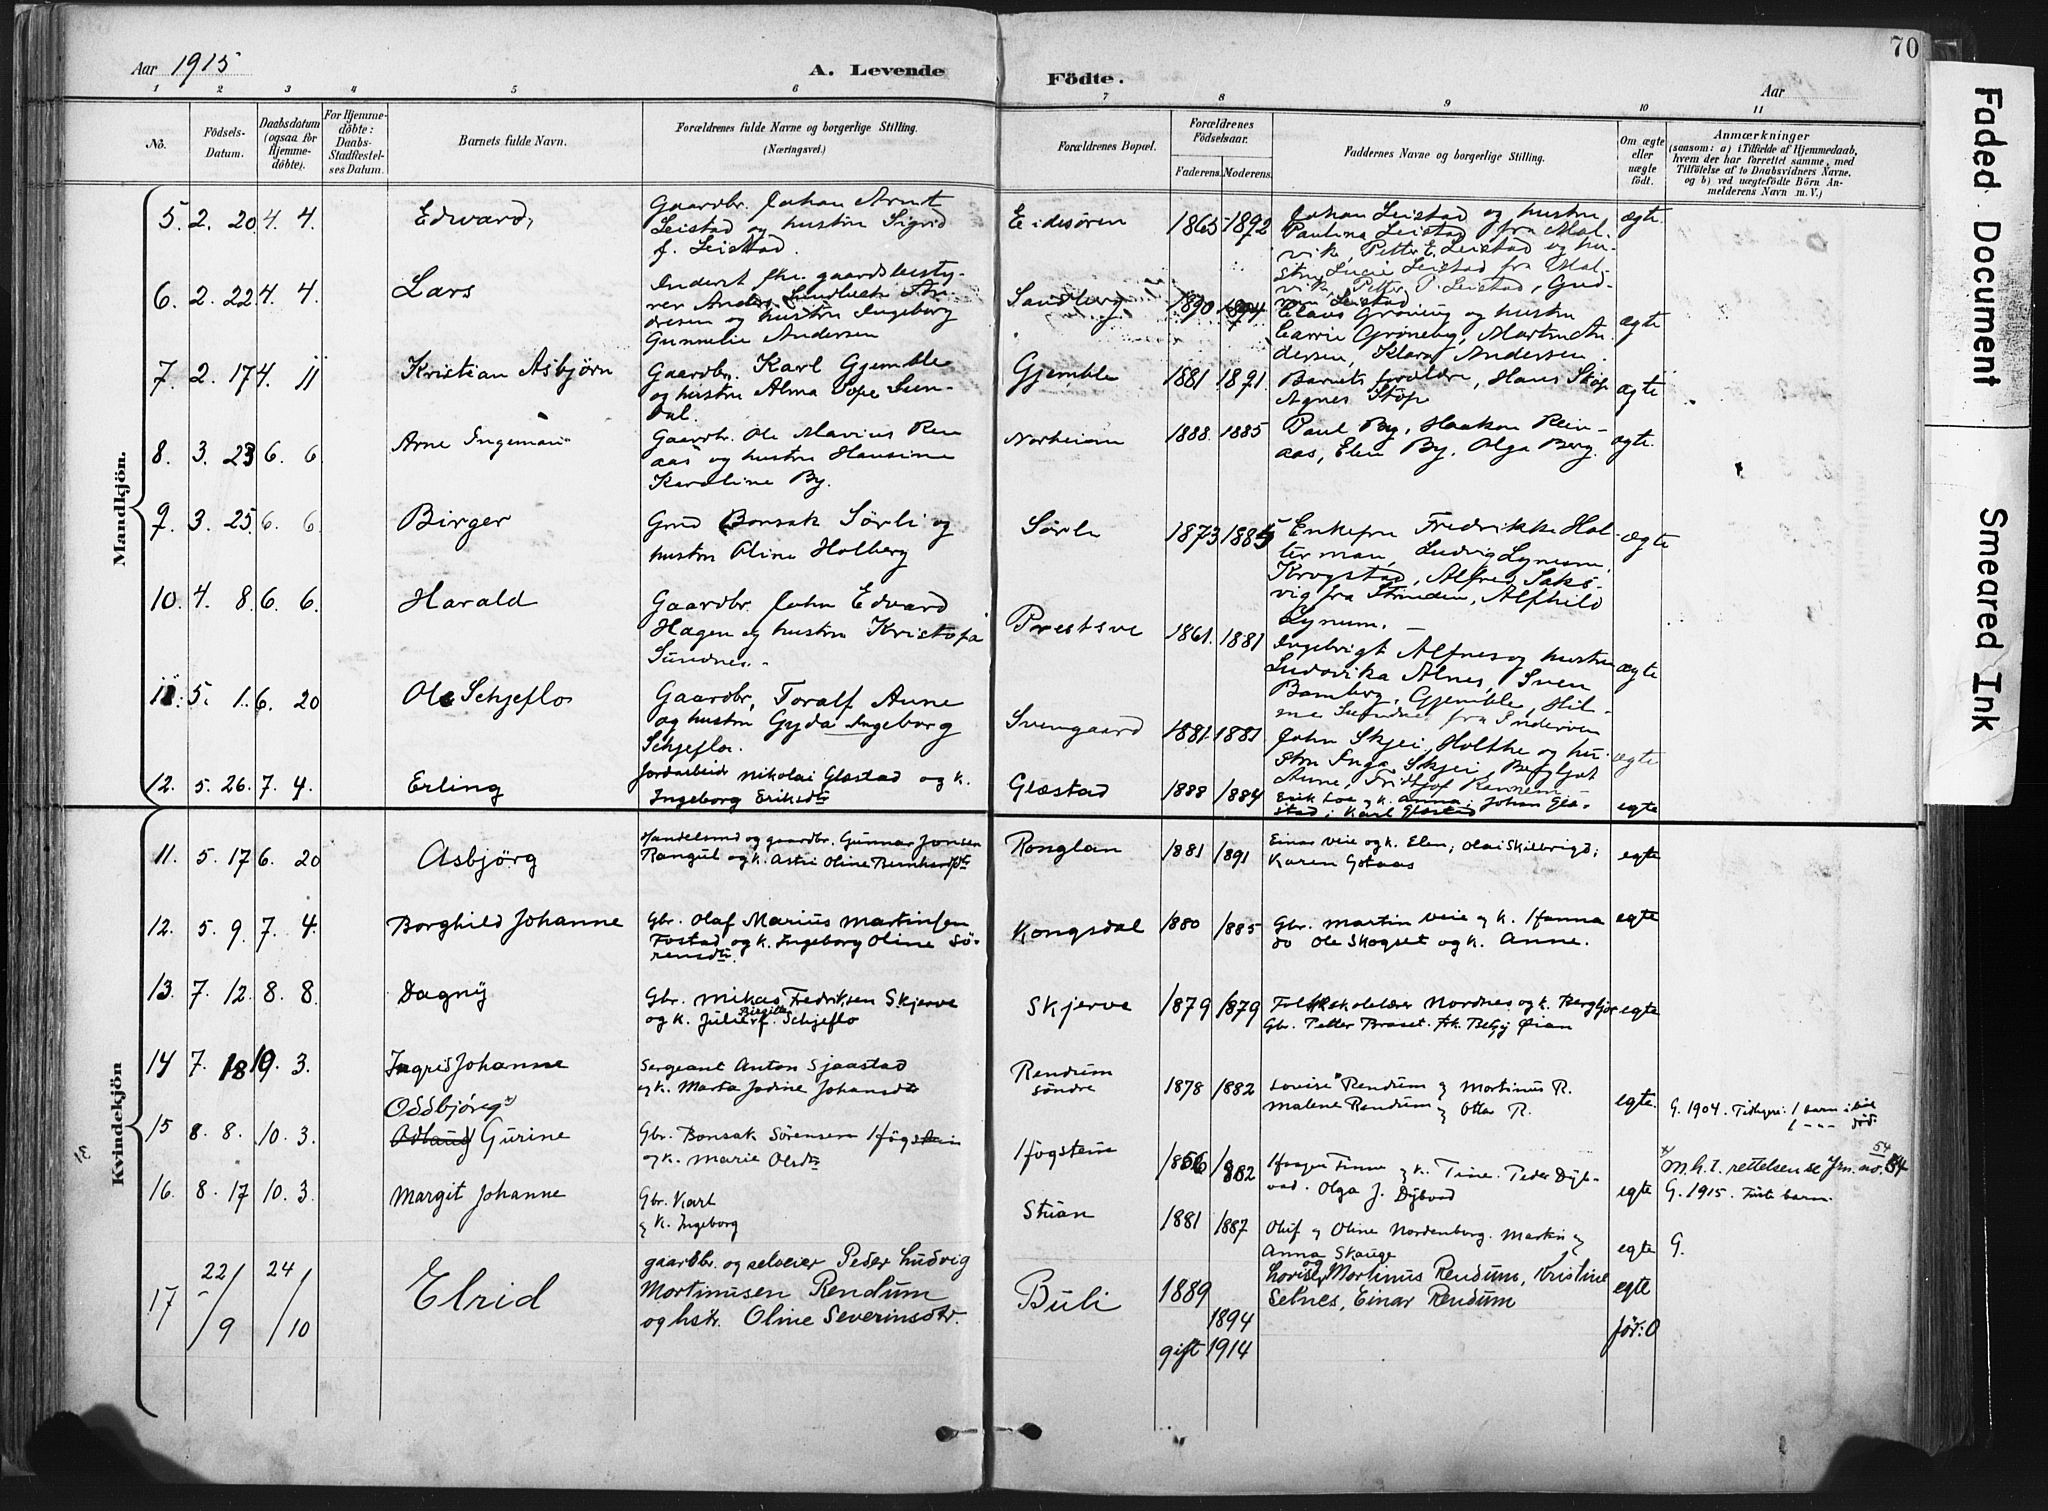 Aar 1915
A. Levende
Födte.
Aar
70
1 2 3 4 5 6 7 8 9 10 11
No.
Födsels-
Datum.
Daabsdatum
(ogsaa for
Hjemme-
döbte).
For Hjemme-
döbte:
Daabs-
Stadfæstel-
ses Datum.
Barnets fulde Navn.
Forældrenes fulde Navne og borgerlige Stilling.
(Næringsvei.)
Forældrenes Bopæl.
Forældrenes
Födselsaar.
Faderens. Moderens.
Faddernes Navne og borgerlige Stilling.
Om ægte
eller
uægte
födt.
Anmærkninger
(saasom: a) i Tilfælde af Hjemmedaab,
hvem der har forrettet samme, med
Tilföielse af to Daabsvidners Navne,
og b) ved uægtefödte Börn An-
melderens Navn m. V.)
Mandkjön.
5. 2. 20 4. 4. Edvard,
Gaardbr. Johan Arnt
Leistad og hustru Sigrid
f. Leistad.
Eidesören 1865 1892
Johan Leistad og hustru
Paulina Leistad fra Mal-
vik, Petter E. Leistad og hu-
stru Lucie Leistad fra Mal-
vik, Petter P. Leistad, Gud-
run Leistad
ægte
6. 2. 22 4. 4. Lars
gaardsbesty-
rer Anders Sundbusk An-
dresen og hustru Ingeborg
Gunnelie Andersen
Sandberg 1890 1894
Claus Gröning og hustru
Martin An-
dersen, Klara Andersen
ægte
7. 2. 17 4. 11 Kristian Asbjörn
Gaardbr. Karl Gjemble
og hustru Alma Sofie Sun-
dal.
Gjemble 1881 1891.
Barnets forældre, Hans Stöp
Agnes Stöp
ægte
8. 3. 23 6. 6. Arne Ingeman
Gaardbr. Ole Marius Ren
aas og hustru Hansine
Karoline By.
Norheim 1888. 1885
Paul By, Haakon Rein-
aas, Elen By, Olga Berg.
ægte.
9. 3. 25. 6. 6. Birger
Gmd Bonsak Sörli og
hustru Oline Holberg
Sörli 1873 1885
Enkefru Fredrikke Hol-
terman, Ludvig Lynum,
Krogstad, Alfred Saks-
vig fra Strinden, Alfhild
Lynum.
ægte
10. 4. 8. 6. 6. Harald
Gaardbr. John Edvard
Hagen og hustru Kristofa
Sundnes.
Prestsve 1861. 1881
Ingebrigt Alfnes og hustru
Ludovika Alnes, Sven
Bamberg, Gjemble, Hil-
ma Sundnes fra Inderöen
ægte
11. 5. 1. 6. 20 Ole Schjeflo
Gaardbr, Toralf Aune
og hustru Gyda Ingeborg
Schjeflo.
Svengaard 1881. 1881
John Skjei, Holthe og hu-
stru Inga Skjei, Bergljot
Aune, Fridtjof Rannem
ægte
12. 5. 26. 7. 4. Erling
Jordarbeidr Nikolai Glæstad og k.
Ingeborg Eriksdtr
Glæstad 1888 1884
Erik Loe og k. Anna; Johan Glæ-
stad; Karl Glæstad
egte
Kvindekjön
11. 5. 17 6. 20 Asbjörg
Handelsmd og gaardbr. Gunnar Jonsen
Rangul og k. Astri Oline Bernhardsdtr
Ronglan 1881 1891
Einar Veie og k. Elen; Olai Skilbrigt;
Karen Gotaas
egte
12. 5. 9. 7. 4. Borghild Johanne
Gbr. Olaf Marius Martinsen
Fostad og k. Ingeborg Oline Sö-
rensdtr.
Kongsdal 1880 1885
Gbr. Martin Veie og k. Hanna
do Ole Skogset og k. Anne.
egte
13. 7. 12. 8. 8. Dagny
Gbr. Mikas Fredriksen Skjerve
og k. Julie Birgitte f. Schjeflo
Skjerve 1879 1879
Folkeskolelærer Nordnes og k. Bergljot
Gbr. Petter Braset. Frk. Betzy Öian
egte
14 7. 18 10. 3. Ingrid Johanne
Sergeant Anton Sjaastad
og k. Marta Jodine Johansdtr
Rendum
söndre
1878 1882
Lovise Rendum og Mortinus R.
Malene Rendum og Ottar R.
egte.
G. 1904. Tidligere: 1 barn i live
1 -"- död.
15 8. 8. 10. 3. Oddbjörg x)
Gurine
Gbr. Bonsak Sörensen Högstein
og k. Marie Olsdtr
Högstein 1856 1882
Haagen Finne og k. Tine. Peder Dyb-
vad. Olga J. Dybvad
egte
x) m. h. t. rettelsen se Jrn. no. 54
G. 1915. Første barn.
16. 8. 17 10. 3. Margit Johanne
Gbr. Karl
og k. Ingeborg
Stuan 1881 1887
Oluf og Oline Nordenborg. Martin og
Anna Skauge
egte G.
17 22/9 24/10 Elrid
gaardbr. og selveier Peder Ludvig
Mortinusen Rendum
og hstr. Oline Severinsdtr.
Buli 1889
1894
gift 1914
Lovise og Mortinus Rendum, Kristine
Selnes, Einar Rendum
egte
för: 0
Faded Document
Smeared Ink